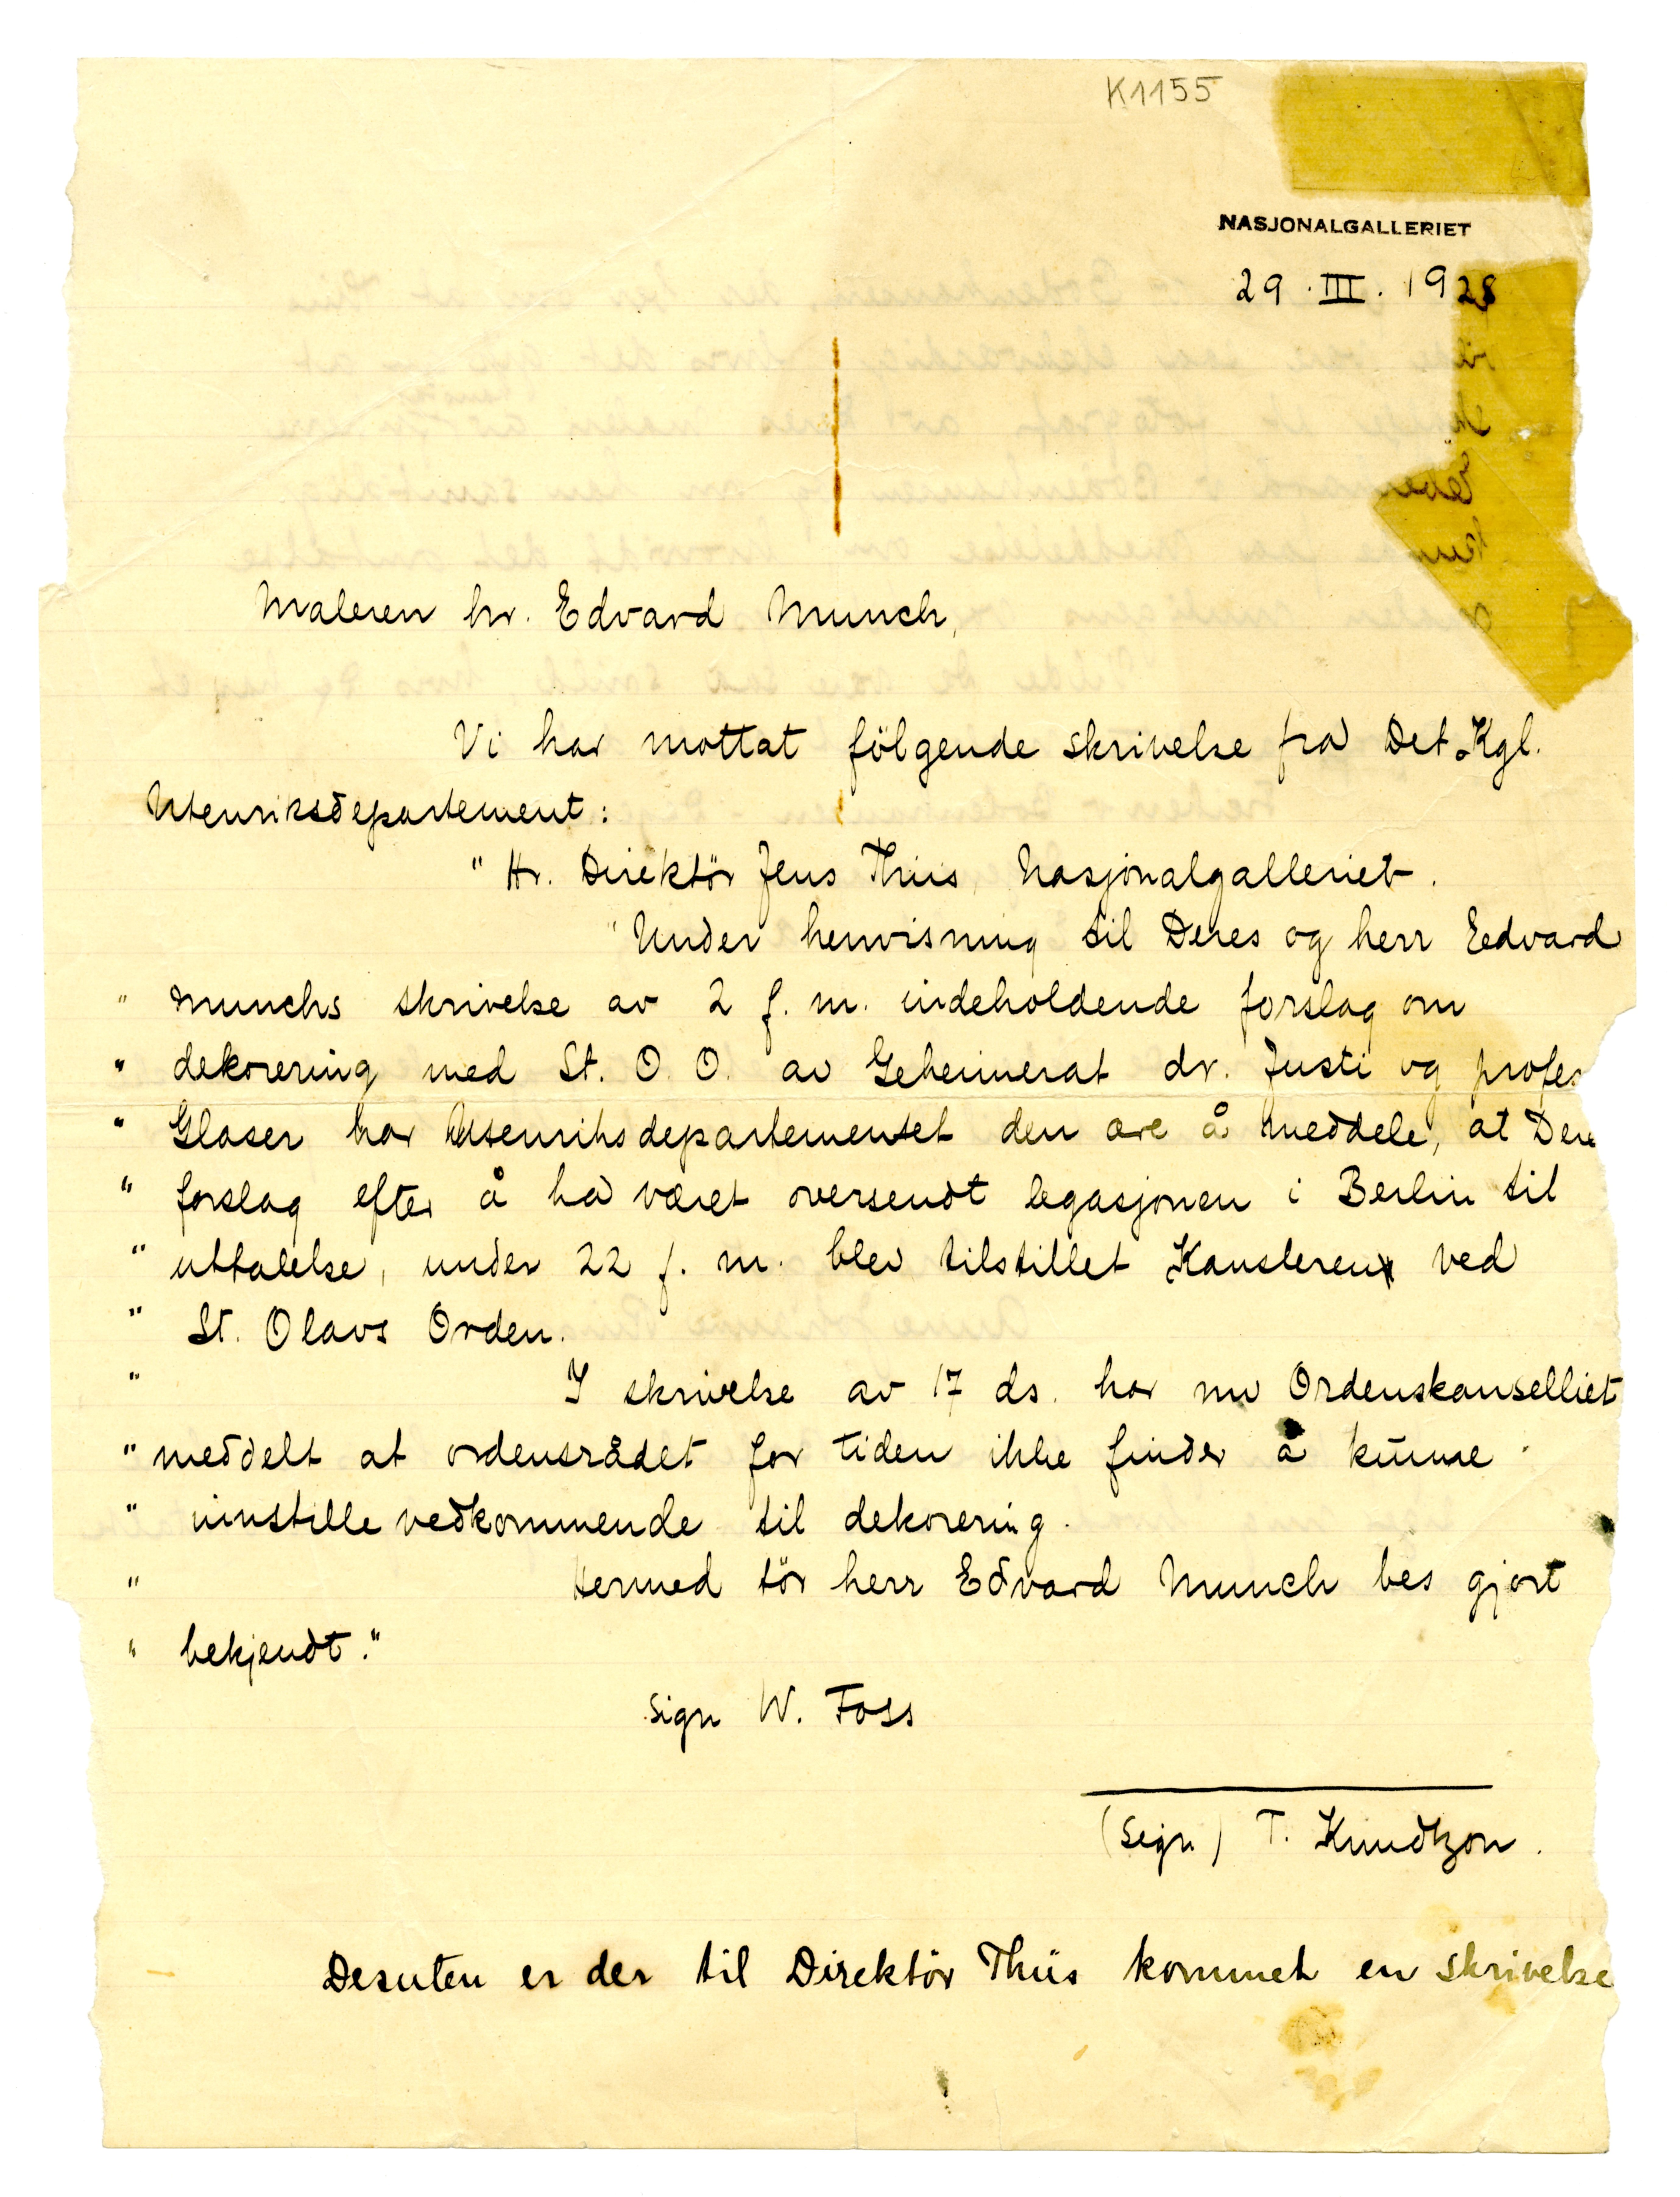 K1155
NASJONALGALLERIET
29. III. 1928
Maleren hr. Edvard Munch,
Vi har mottat følgende skrivelse fra Det Kgl.
Utenriksdepartement:
" Hr. Direktör Jens Thiis, Nasjonalgalleriet.
" Under henvisning til Deres og herr Edvard
" Munchs skrivelse av 2 f. m. indeholdende forslag om
" dekorering med St. O. O. av Geheimerat dr. Justi og profes
" Glaser har Utenriksdepartementet den ære å meddele, at Dere
" forslag efter å ha været oversendt legasjonen i Berlin til
" uttalelse, under 22 f. m. blev tilstillet Kansleren ved
" St. Olavs Orden.
" I skrivelse av 17 ds. har nu Ordenskanselliet
" meddelt at ordensrådet for tiden ikke finder å kunne
" innstille vedkommende til dekorering.
" Hermed tör herr Edvard Munch bes gjort
" bekjendt."
Sign W. Foss
(Sign) T. Knudtzon.
Desuten er der til Direktör Thiis kommet en skrivelse